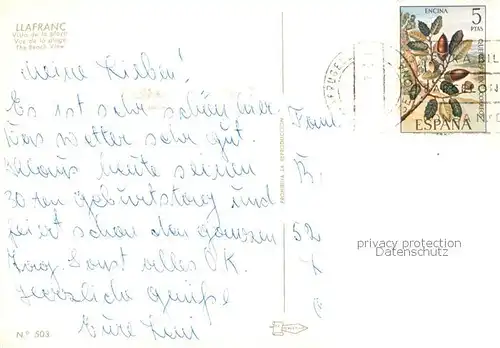 LLAFRANC
Vista de la playa
Vue de la plage
The Beach View
Meine Lieben!
Es ist sehr schön hier.
Das Wetter sehr gut.
heute seinen
30-ten Geburtstag und
feiert schon den ganzen
Tag. Sonst alles OK.
Herzliche Grüße
Eure
Nº 503
PROHIBIDA LA REPRODUCCION
ENCINA
5
PTAS
ESPAÑA
Fam
B.
52
privacy protection
Datenschutz